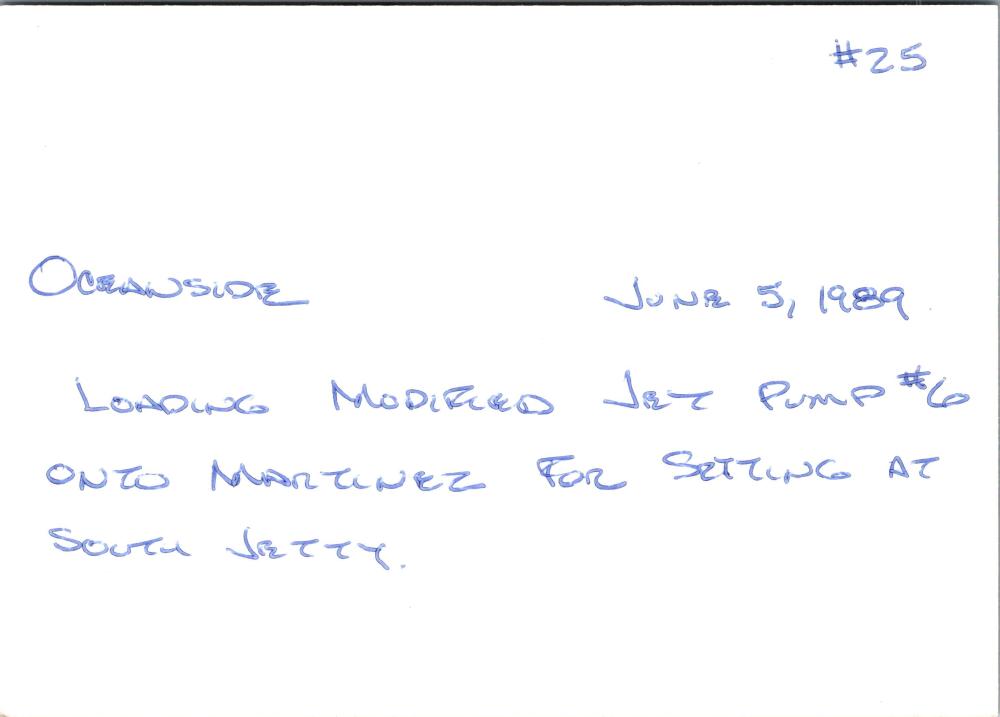 #25
Oceanside June 5, 1989
Loading Modified Jet Pump #6
onto Martinez for Setting at
South Jetty.